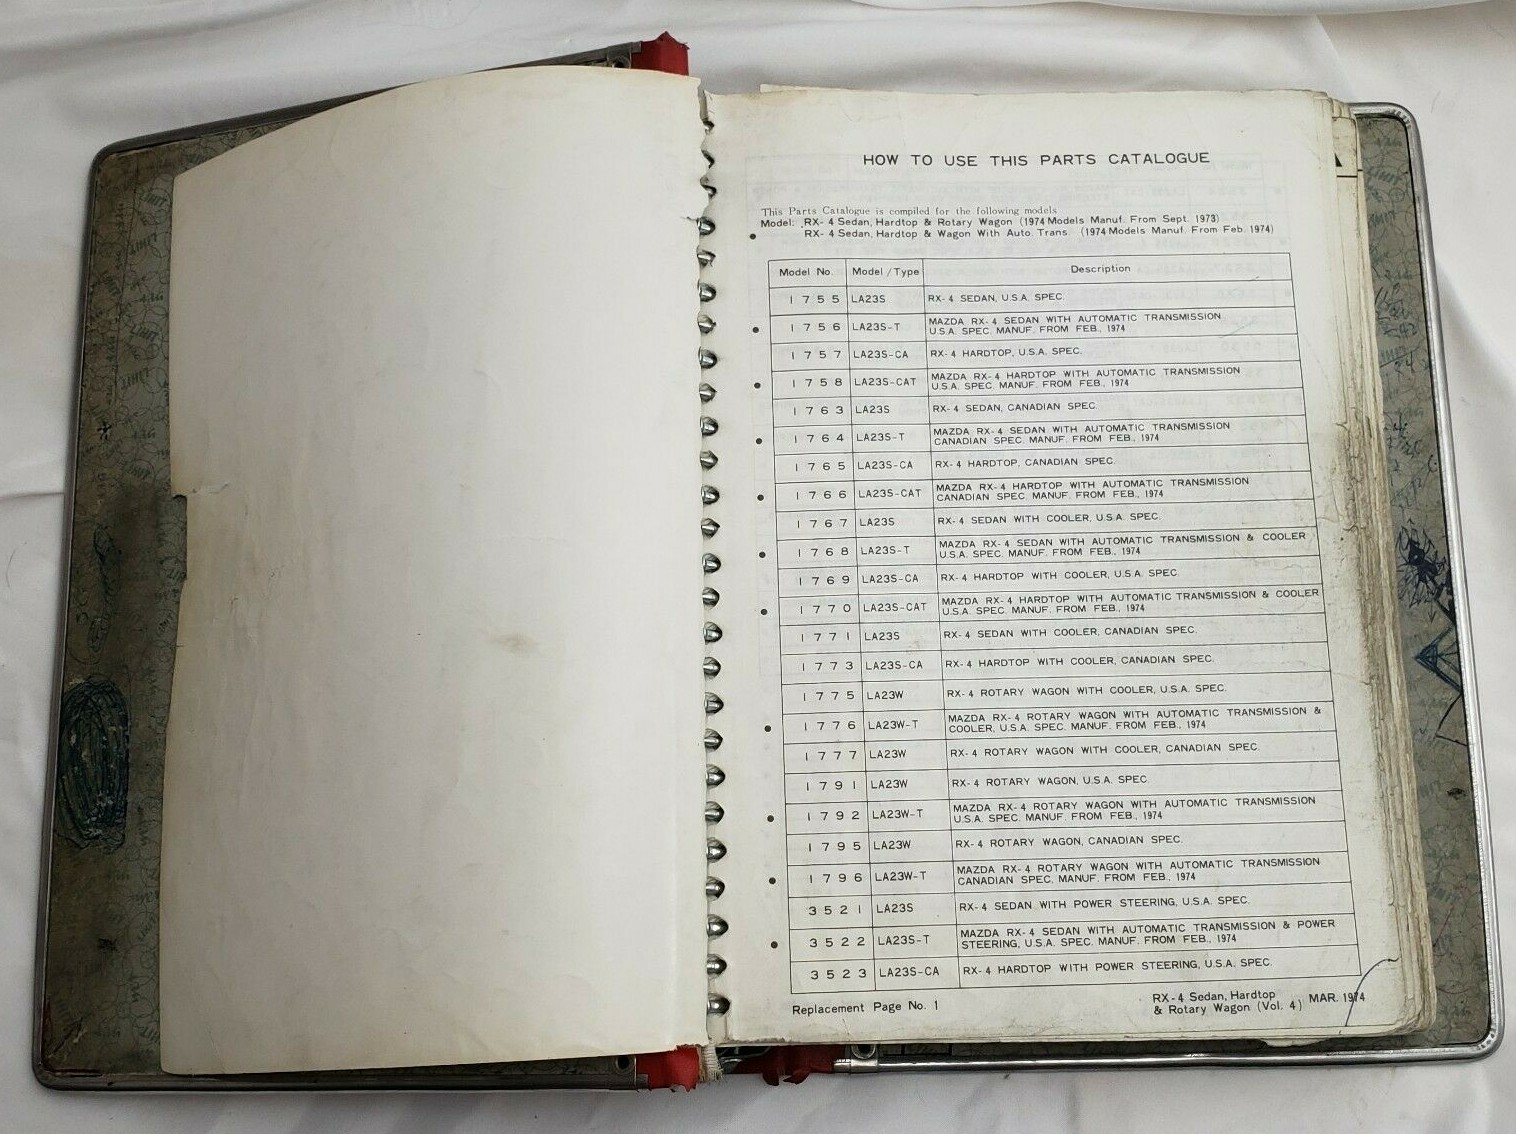 HOW TO USE THIS PARTS CATALOGUE
This Parts Catalogue is compiled for the following models
Model: RX-4 Sedan, Hardtop & Rotary Wagon (1974 Models Manuf. From Sept. 1973)
• RX-4 Sedan, Hardtop & Wagon With Auto. Trans. (1974 Models Manuf. From Feb. 1974)
Model No. Model/Type Description
1755 LA23S RX-4 SEDAN, U.S.A. SPEC.
• 1756 LA23S-T MAZDA RX-4 SEDAN WITH AUTOMATIC TRANSMISSION
U.S.A. SPEC. MANUF. FROM FEB., 1974
1757 LA23S-CA RX-4 HARDTOP, U.S.A. SPEC.
• 1758 LA23S-CAT MAZDA RX-4 HARDTOP WITH AUTOMATIC TRANSMISSION
U.S.A. SPEC. MANUF. FROM FEB., 1974
1763 LA23S RX-4 SEDAN, CANADIAN SPEC.
• 1764 LA23S-T MAZDA RX-4 SEDAN WITH AUTOMATIC TRANSMISSION
CANADIAN SPEC. MANUF. FROM FEB., 1974
1765 LA23S-CA RX-4 HARDTOP, CANADIAN SPEC.
• 1766 LA23S-CAT MAZDA RX-4 HARDTOP WITH AUTOMATIC TRANSMISSION
CANADIAN SPEC. MANUF. FROM FEB., 1974
1767 LA23S RX-4 SEDAN WITH COOLER, U.S.A. SPEC.
• 1768 LA23S-T MAZDA RX-4 SEDAN WITH AUTOMATIC TRANSMISSION & COOLER
U.S.A. SPEC. MANUF. FROM FEB., 1974
1769 LA23S-CA RX-4 HARDTOP WITH COOLER, U.S.A. SPEC.
• 1770 LA23S-CAT MAZDA RX-4 HARDTOP WITH AUTOMATIC TRANSMISSION & COOLER
U.S.A. SPEC. MANUF. FROM FEB., 1974
1771 LA23S RX-4 SEDAN WITH COOLER, CANADIAN SPEC.
1773 LA23S-CA RX-4 HARDTOP WITH COOLER, CANADIAN SPEC.
1775 LA23W RX-4 ROTARY WAGON WITH COOLER, U.S.A. SPEC.
• 1776 LA23W-T MAZDA RX-4 ROTARY WAGON WITH AUTOMATIC TRANSMISSION &
COOLER, U.S.A. SPEC. MANUF. FROM FEB., 1974
1777 LA23W RX-4 ROTARY WAGON WITH COOLER, CANADIAN SPEC.
1791 LA23W RX-4 ROTARY WAGON, U.S.A. SPEC.
• 1792 LA23W-T MAZDA RX-4 ROTARY WAGON WITH AUTOMATIC TRANSMISSION
U.S.A. SPEC. MANUF. FROM FEB., 1974
1795 LA23W RX-4 ROTARY WAGON, CANADIAN SPEC.
• 1796 LA23W-T MAZDA RX-4 ROTARY WAGON WITH AUTOMATIC TRANSMISSION
CANADIAN SPEC. MANUF. FROM FEB., 1974
3521 LA23S RX-4 SEDAN WITH POWER STEERING, U.S.A. SPEC.
• 3522 LA23S-T MAZDA RX-4 SEDAN WITH AUTOMATIC TRANSMISSION & POWER
STEERING, U.S.A. SPEC. MANUF. FROM FEB., 1974
3523 LA23S-CA RX-4 HARDTOP WITH POWER STEERING, U.S.A. SPEC.
Replacement Page No. 1
RX-4 Sedan, Hardtop
& Rotary Wagon (Vol. 4) MAR. 1974